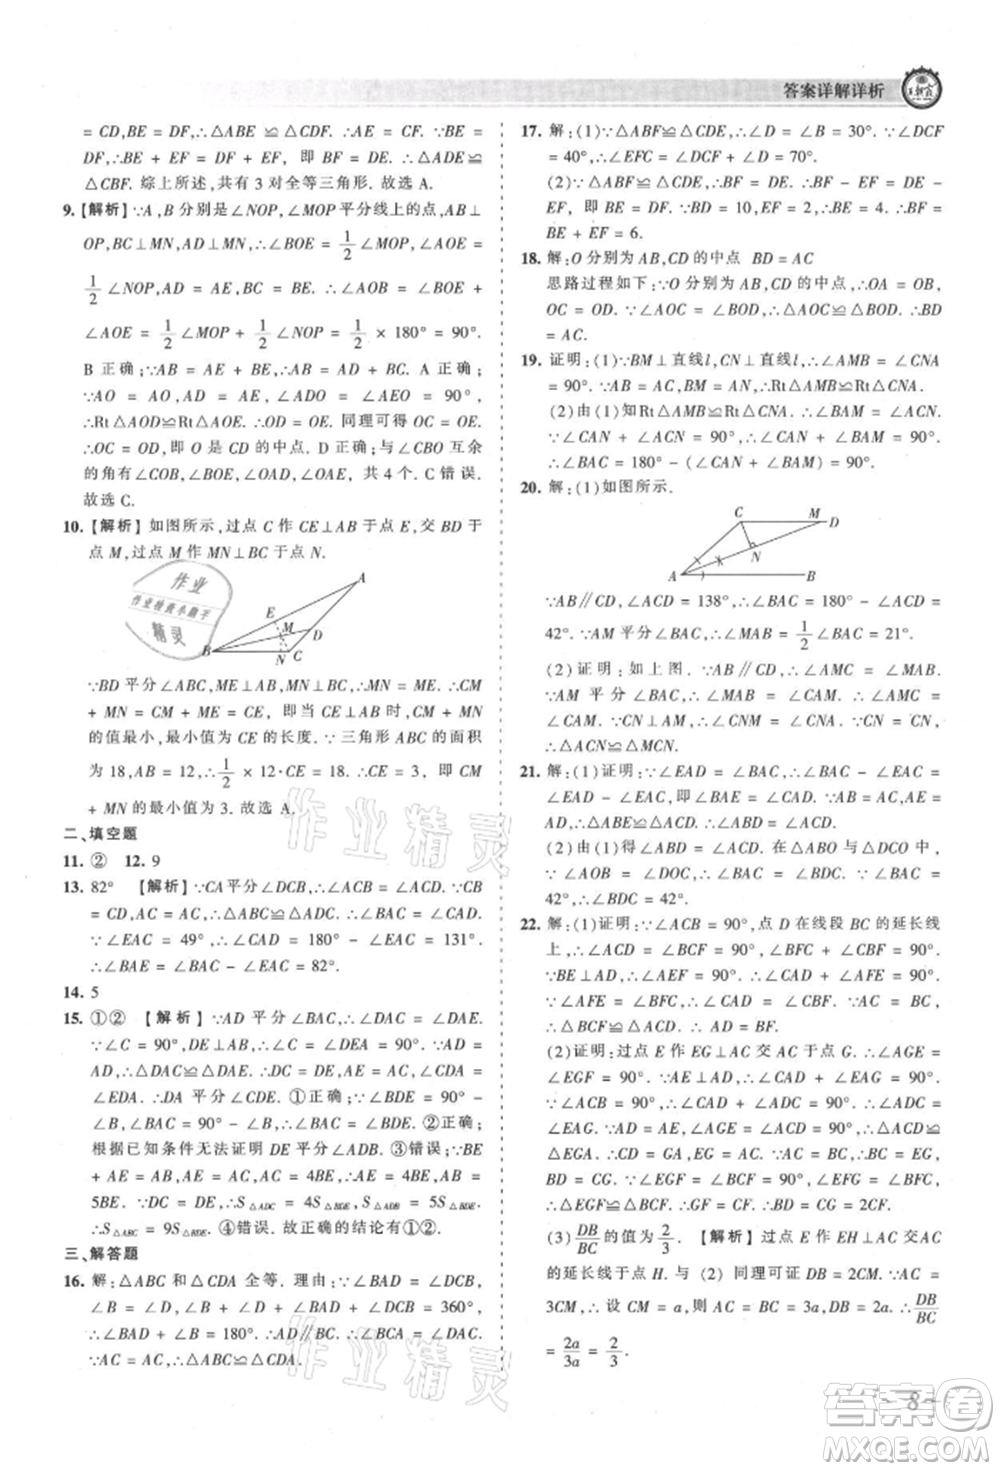 答案详解详析
= CD,BE = DF,∴△ABE≌△CDF. ∵AE = CF,BE =
DF,∴BF = DE. ∴BE + EF = DF + EF, 即 BF = DE. ∴△ADE≌
△CBF. 综上所述,共有 3 对全等三角形. 故选 A.
9. 【解析】∵A,B 分别是∠NOP,∠MOP平分线上的点,AB⊥
OP,BC⊥MN,AD⊥MN,∴∠BOE = 1/2 ∠MOP,∠AOE =
1/2 ∠NOP,AD = AE,BC = BE. ∴∠AOB = ∠BOE +
∠AOE = 1/2 ∠MOP + 1/2 ∠NOP = 1/2 × 180° = 90°.
B 正确. ∴AB = AE + BE = AD + BC. A 正确.
∵AO = AO, AD = AE, ∠ADO = ∠AEO = 90°,
∴Rt△AOD≌Rt△AOE. ∴OD = OE. 同理可得 OC = OE.
∴OC = OD,即 O 是 CD 的中点. D 正确;与∠CBO 互余
的角有∠COB,∠BOE,∠OAD,∠OAE, 共 4 个. C 错误.
故选 C.
10. 【解析】如图所示,过点 C 作 CE⊥AB 于点 E,交 BD 于
点 M,过点 M 作 MN⊥BC 于点 N.
A
E
M
D
B
N
C
∵BD 平分∠ABC,ME⊥AB,MN⊥BC,∴MN = ME. ∴CM
+ MN = CM + ME = CE, 即当 CE⊥AB 时,CM + MN 的
值最小,最小值为 CE 的长度. ∵三角形 ABC 的面积
为 18,AB = 12,∴1/2 × 12·CE = 18. ∴CE = 3, 即 CM
+ MN 的最小值为 3. 故选 A.
二、填空题
11. ② 12. 9
13. 82° 【解析】∵CA平分∠DCB,∴∠ACB = ∠ACD. ∵CB
= CD,AC = AC,∴△ABC≌△ADC. ∴∠BAC = ∠CAD.
∵∠EAC = 49°,∴∠CAD = 180° − ∠EAC = 131°.
∴∠BAE = ∠BAC − ∠EAC = 82°.
14. 5
15. ①② 【解析】∵AD 平分∠BAC,∴∠DAC = ∠DAE.
∵∠C = 90°,DE⊥AB,∴∠C = ∠DEA = 90°. ∵AD =
AD,∴△DAC≌△DAE. ∴∠CDA = ∠EDA. ∴DA 平分∠CDE. ①正确;∵∠BDE = 90°
− ∠B,∠BAC = 90° − ∠B,∴∠BAC = ∠BDE. ②正确;
根据已知条件无法证明 DE平分∠ADB. ③错误;∵AB
= BE + AE = AB + AC, AC = 4BE,∴AE = 4BE,AB =
5BE. ∵DC = DE,∴S△ADC = 4S△BDE,S△ADB = 5S△BDE.
∴S△ABC = 9S△BDE. ④错误. 故正确的结论有①②.
三、解答题
16. 解:△ABC 和△CDA 全等. 理由:∵AD∥BC,
∴∠ACB = ∠DAC. ∵∠BAD + ∠DCB = 360°,
∴∠BAD + ∠B = 180°. ∴AD∥BC. ∴∠BCA = ∠DAC.
∵AC = AC,∴△ABC≌△CDA.
17. 解:(1)∵△ABF≌△CDE,∴∠D = ∠B = 30°. ∵∠DCF
= 40°,∴∠EFC = ∠DCF + ∠D = 70°.
(2)∵△ABF≌△CDE,∴BF = DE. ∴BF − EF = DE −
EF,即 BE = DF. ∵BD = 10,EF = 2,∴BE = 4. ∴BF =
BE + EF = 6.
18. 解:O 分别为 AB,CD 的中点 BD = AC
思路过程如下:∵O 分别为 AB,CD 的中点,∴OA = OB,
OC = OD. ∵∠AOC = ∠BOD,∴△AOC≌△BOD. ∴BD
= AC.
19. 证明:(1)∵BM⊥直线l,CN⊥直线l,∴∠AMB = ∠CNA
= 90°. ∵AB = CA,BM = AN,∴Rt△AMB≌Rt△CNA.
(2)由(1)知Rt△AMB≌Rt△CNA,∴∠BAM = ∠ACN.
∵∠CAN + ∠ACN = 90°,∴∠CAN + ∠BAM = 90°.
∴∠BAC = 180° − (∠CAN + ∠BAM) = 90°.
20. 解:(1)如图所示.
C
M
D
N
A
B
∵AB∥CD,∠ACD = 138°,∴∠BAC = 180° − ∠ACD =
42°. ∵AM 平分∠BAC,∴∠MAB = 1/2 ∠BAC = 21°.
(2)证明:如上图. ∵AB∥CD,∴∠AMC = ∠MAB.
∵AM 平分∠BAC,∴∠MAB = ∠CAM. ∴∠AMC =
∠CAM. ∵CN⊥AM,∴∠CNM = ∠CNA. ∵CN = CN,
∴△ACN≌△MCN.
21. 解:(1)证明:∵∠EAD = ∠BAC,∴∠EAD − ∠EAC =
∠BAC − ∠EAC,即∠BAE = ∠CAD. ∵AB = AC,AE =
AD,∴△BAE≌△CAD.
(2)由(1)得∠ABO = ∠DCO. 在△ABO 与△DCO 中,
∵∠AOB = ∠COD,∴∠BDC = ∠BAC. ∵∠BAC =
42°,∴∠BDC = 42°.
22. 解:(1)证明:∵∠ACB = 90°,点 D 在线段 BC的延长线
上,∴∠ACD = ∠BCF = 90°,∴∠BFC + ∠CBF = 90°.
∵BE⊥AD,∴∠AEF = 90°. ∴∠AFE + ∠CAD = 90°.
∵∠AFE = ∠BFC,∴∠CAD = ∠CBF. ∵AC = BC,
∴△BCF≌△ACD. ∴AD = BF.
(2)证明:过点 E 作 EG⊥AC 交 AC 于点 G. ∴∠AGE =
∠EGF = 90°. ∴∠AEG + ∠EAG = 90°.
∵∠ACB = 90°,∴∠ACD = 90°. ∴∠ACD =
∠EAG. ∵AD = AE,∠AGE = ∠ACD,∴△ADC≌
△EAG. ∴CD = AG,AC = EG. ∵AC = BC,∴BC = EG.
∵∠BCF = ∠EGF = 90°,∠BFC = ∠EFG,
∴△EGF≌△BCF. ∴BF = EF.
(3) DB/BC 的值为 2/3. 【解析】过点 E 作 EH⊥AC 交 AC
的延长线于点 H. 与 (2) 同理可证 DB = 2CM,AC =
3CM,∴设 CM = a,则 AC = BC = 3a,DB = 2a. ∴ DB/BC
= 2a/3a = 2/3.
8
作业精灵
作业检查小助手
作业精灵
作业精灵
答案圈
MXQE.COM